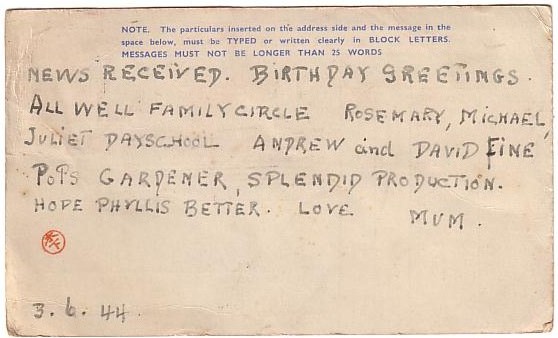 NOTE. The particulars inserted on the address side and the message in the
space below, must be TYPED or written clearly in BLOCK LETTERS.
MESSAGES MUST NOT BE LONGER THAN 25 WORDS
NEWS RECEIVED. BIRTHDAY GREETINGS.
ALL WELL FAMILY CIRCLE ROSEMARY, MICHAEL,
JULIET DAYSCHOOL ANDREW and DAVID FINE
POPS GARDENER, SPLENDID PRODUCTION.
HOPE PHYLLIS BETTER. LOVE MUM.
3.6.44